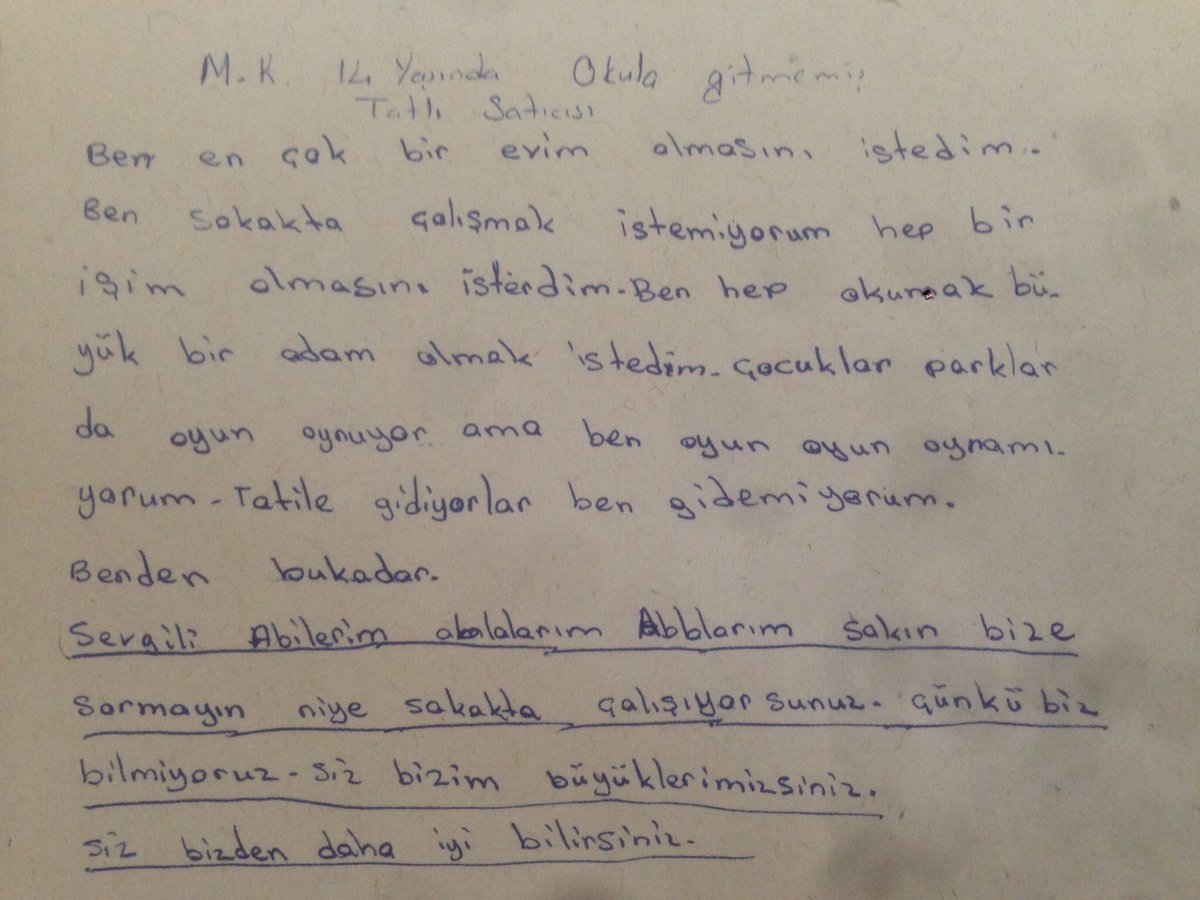 M.K. 14 Yaşında Okula gitmemiş
Tatlı Satıcısı
Ben en çok bir evim olmasını istedim.
Ben sokakta çalışmak istemiyorum hep bir
işim olmasını isterdim. Ben hep okumak bü-
yük bir adam olmak istedim. Çocuklar parklar
da oyun oynuyor ama ben oyun oyun oynamı-
yorum. Tatile gidiyorlar ben gidemiyorum.
Benden bukadar.
Sevgili Abilerim ablalarım Abblarım sakın bize
sormayın niye sokakta çalışıyor sunuz. Çünkü biz
bilmiyoruz. Siz bizim büyüklerimizsiniz.
siz bizden daha iyi bilirsiniz.